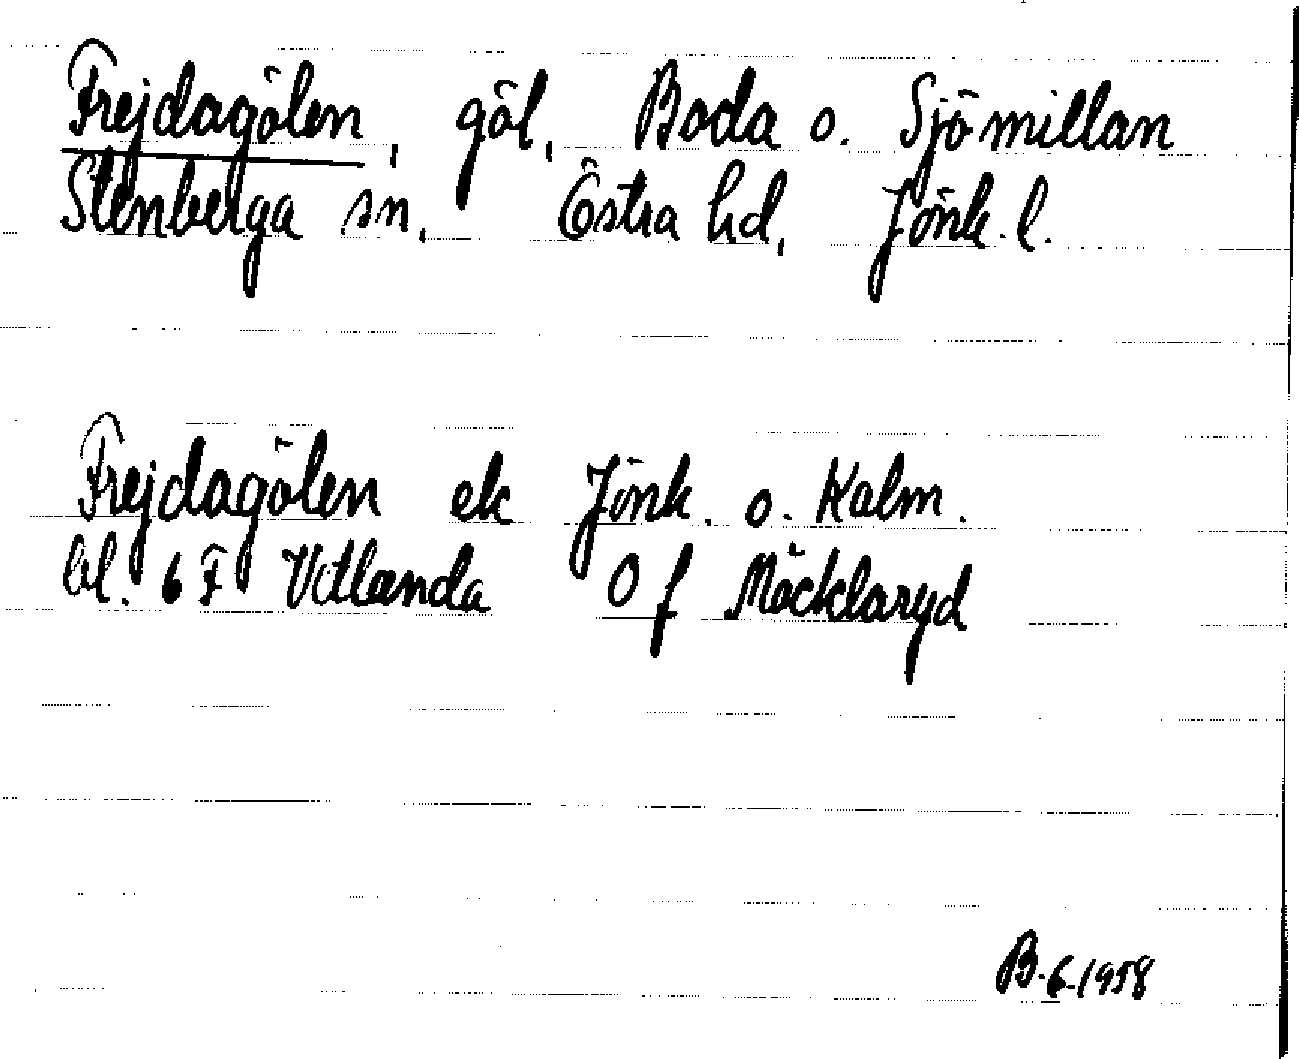 Frejdagölen, göl, Boda o. Sjömillan
Stenberga sn, Östra hd, Jönk. l.
Frejdagölen ek Jönk. o. Kalm.
bl. 6 F Vetlanda 0 f Möcklaryd
B. 6. 1958